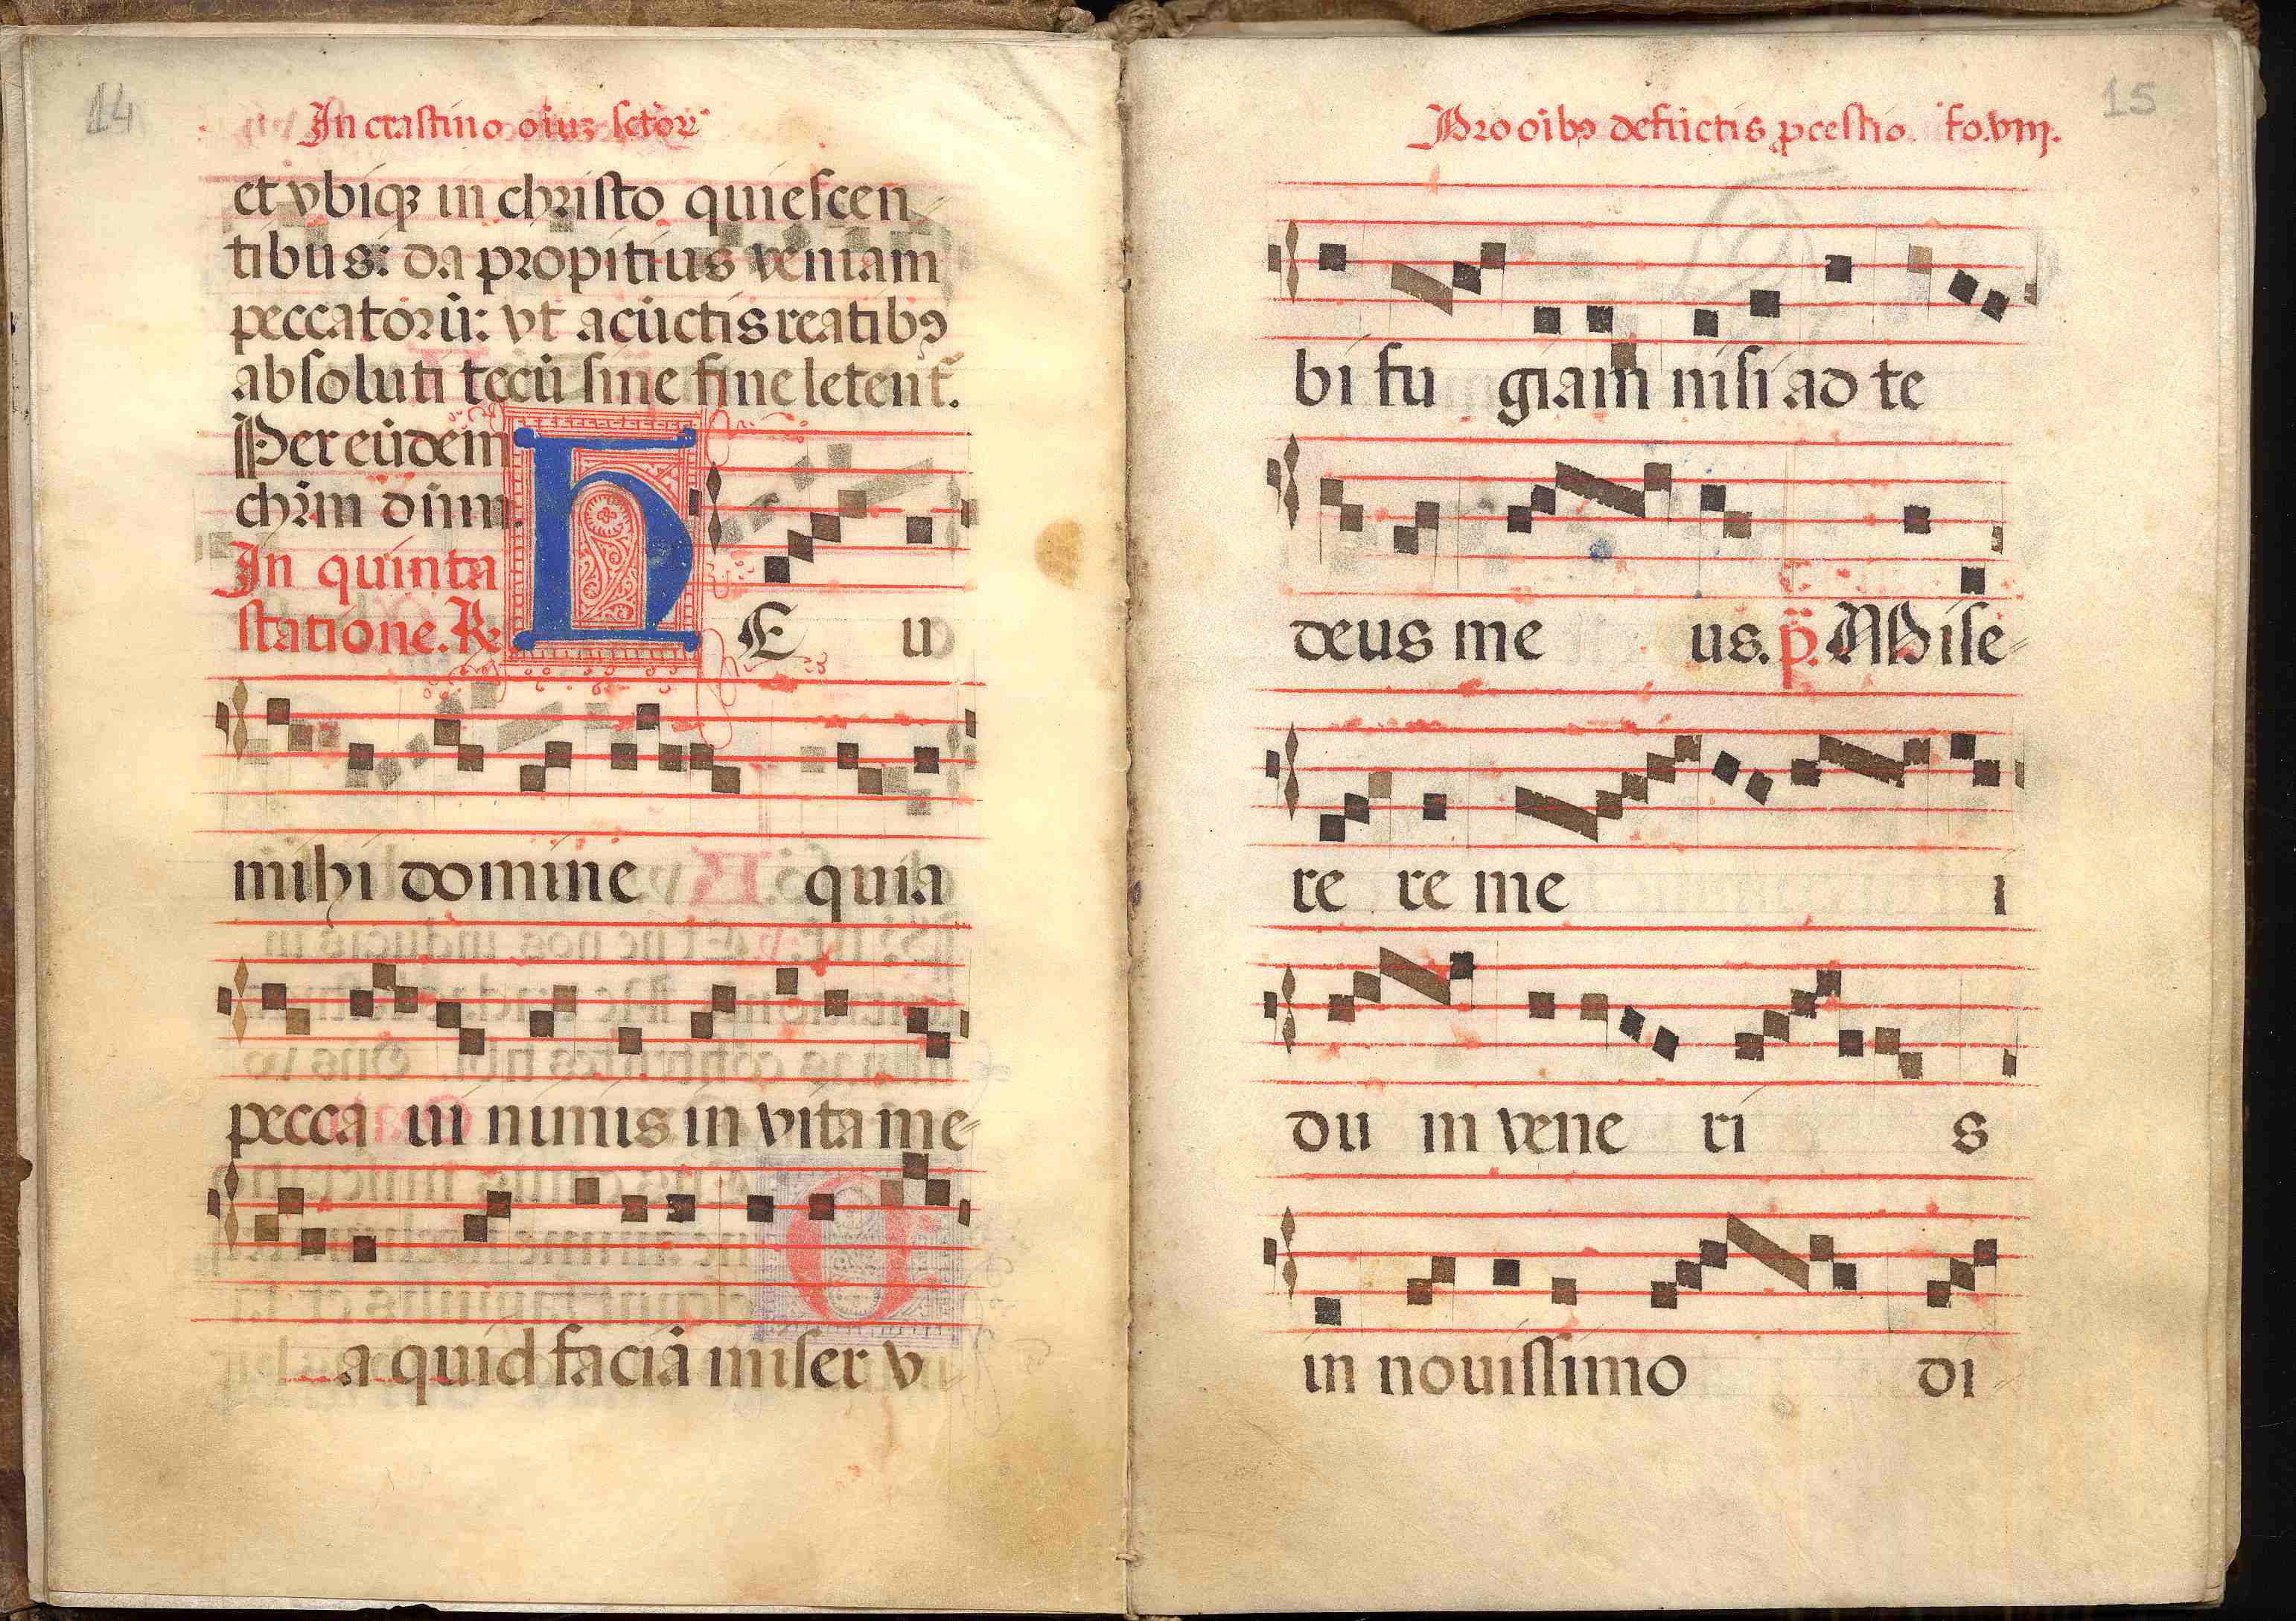 14
In crastino oīuȝ sctōꝝ
et vbiqꝫ in christo quiescen-
tibus: da propitius veniam
peccatorū: vt a cūctis reatibꝰ
absoluti tecū sine fine letent̃.
Per eūdem
chr̄m dūm.
In quinta
statione. ℟
H E u
mihi domine quia
pecca ui nimis in vita me-
a quid faciā miser v
15
Pro oībꝰ defūctis ꝓcessio. fo. viij.
bi fu giam nisi ad te
deus me us. p̈. Mise-
re re me i
du m vene ri s
in nouissimo di-